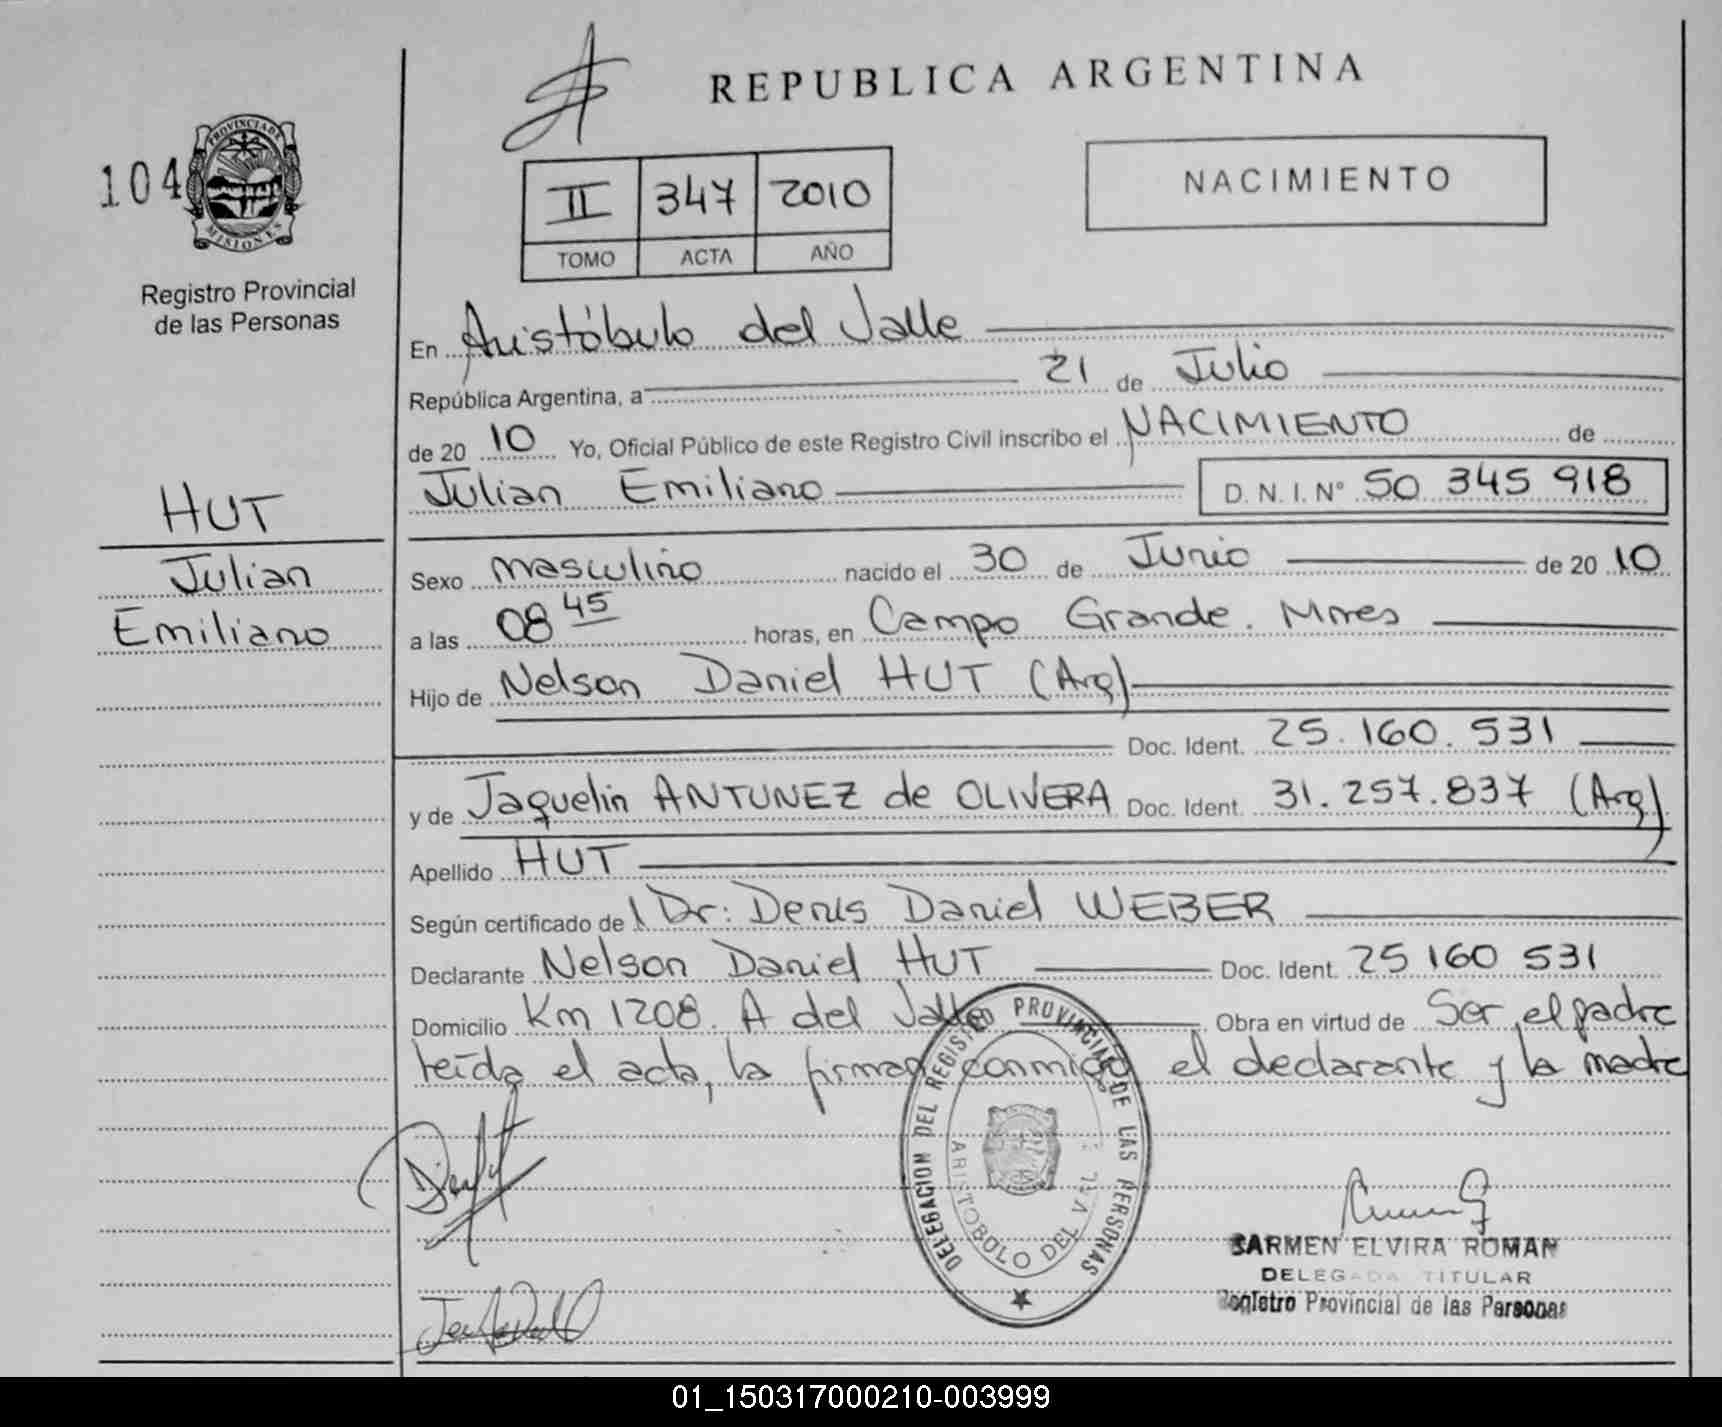 REPUBLICA ARGENTINA
104
PROVINCIA DE
MISIONES
Registro Provincial
de las Personas
II 347 2010
TOMO ACTA AÑO
NACIMIENTO
En Aristóbulo del Valle
República Argentina, a 21 de Julio
de 20 10 Yo, Oficial Público de este Registro Civil inscribo el NACIMIENTO de
Julian Emiliano D. N. I. Nº 50 345 918
HUT
Julian
Emiliano
Sexo masculino nacido el 30 de Junio de 20 10
a las 08 45 horas, en Campo Grande. Mnes
Hijo de Nelson Daniel HUT (Arg)
Doc. Ident. 25.160.531
y de Jaquelin ANTUNEZ de OLIVERA Doc. Ident. 31.257.837 (Arg)
Apellido HUT
Según certificado de Dr: Denis Daniel WEBER
Declarante Nelson Daniel HUT Doc. Ident. 25 160 531
Domicilio Km 1208. A del Valle Obra en virtud de Ser el padre
leída el acta, la firman conmigo el declarante y la madre
DELEGACION DEL REGISTRO PROVINCIAL DE LAS PERSONAS
ARISTOBULO DEL VALLE
CARMEN ELVIRA ROMAN
DELEGADA TITULAR
Registro Provincial de las Personas
01_150317000210-003999